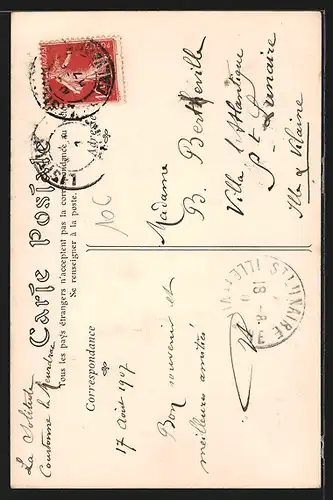 Carte Postale
Tous les pays étrangers n'acceptent pas la correspondance au
Se renseigner à la poste.
Correspondance
Adresse
La Solitude
Courtonne la Meurdrac
17 Août 1907
Bon souvenir et
meilleures amitiés
NoC
Madame
B. Bertheville
Villa l'Atlantique
St Lunaire
Ille & Vilaine
ST LUNAIRE
ILLE
18 - 8